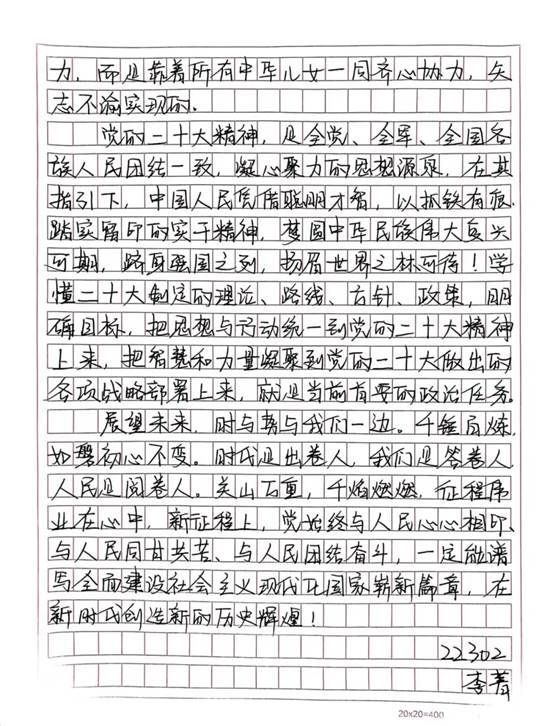 力，而是靠着所有中华儿女一同齐心协力，矢
志不渝实现的。
党的二十大精神，是全党、全军、全国各
族人民团结一致，凝心聚力的思想源泉，在其
指引下，中国人民凭借聪明才智，以抓铁有痕
踏实留印的实干精神，梦圆中华民族伟大复兴
可期，跻身强国之列，扬眉世界之林可待！学
懂二十大制定的理论、路线、方针、政策，明
确目标，把思想与行动统一到党的二十大精神
上来，把智慧和力量凝聚到党的二十大做出的
各项战略部署上来，就是当前首要的政治任务。
展望未来，时与势与我们一边。千锤百炼，
如磐初心不变。时代是出卷人，我们是答卷人，
人民是阅卷人。关山万重，千焰燃燃，征程伟
业在心中，新征程上，党始终与人民心心相印、
与人民同甘共苦、与人民团结奋斗，一定能谱
写全面建设社会主义现代化国家崭新篇章，在
新时代创造新的历史辉煌！
22302
李菁
20×20=400